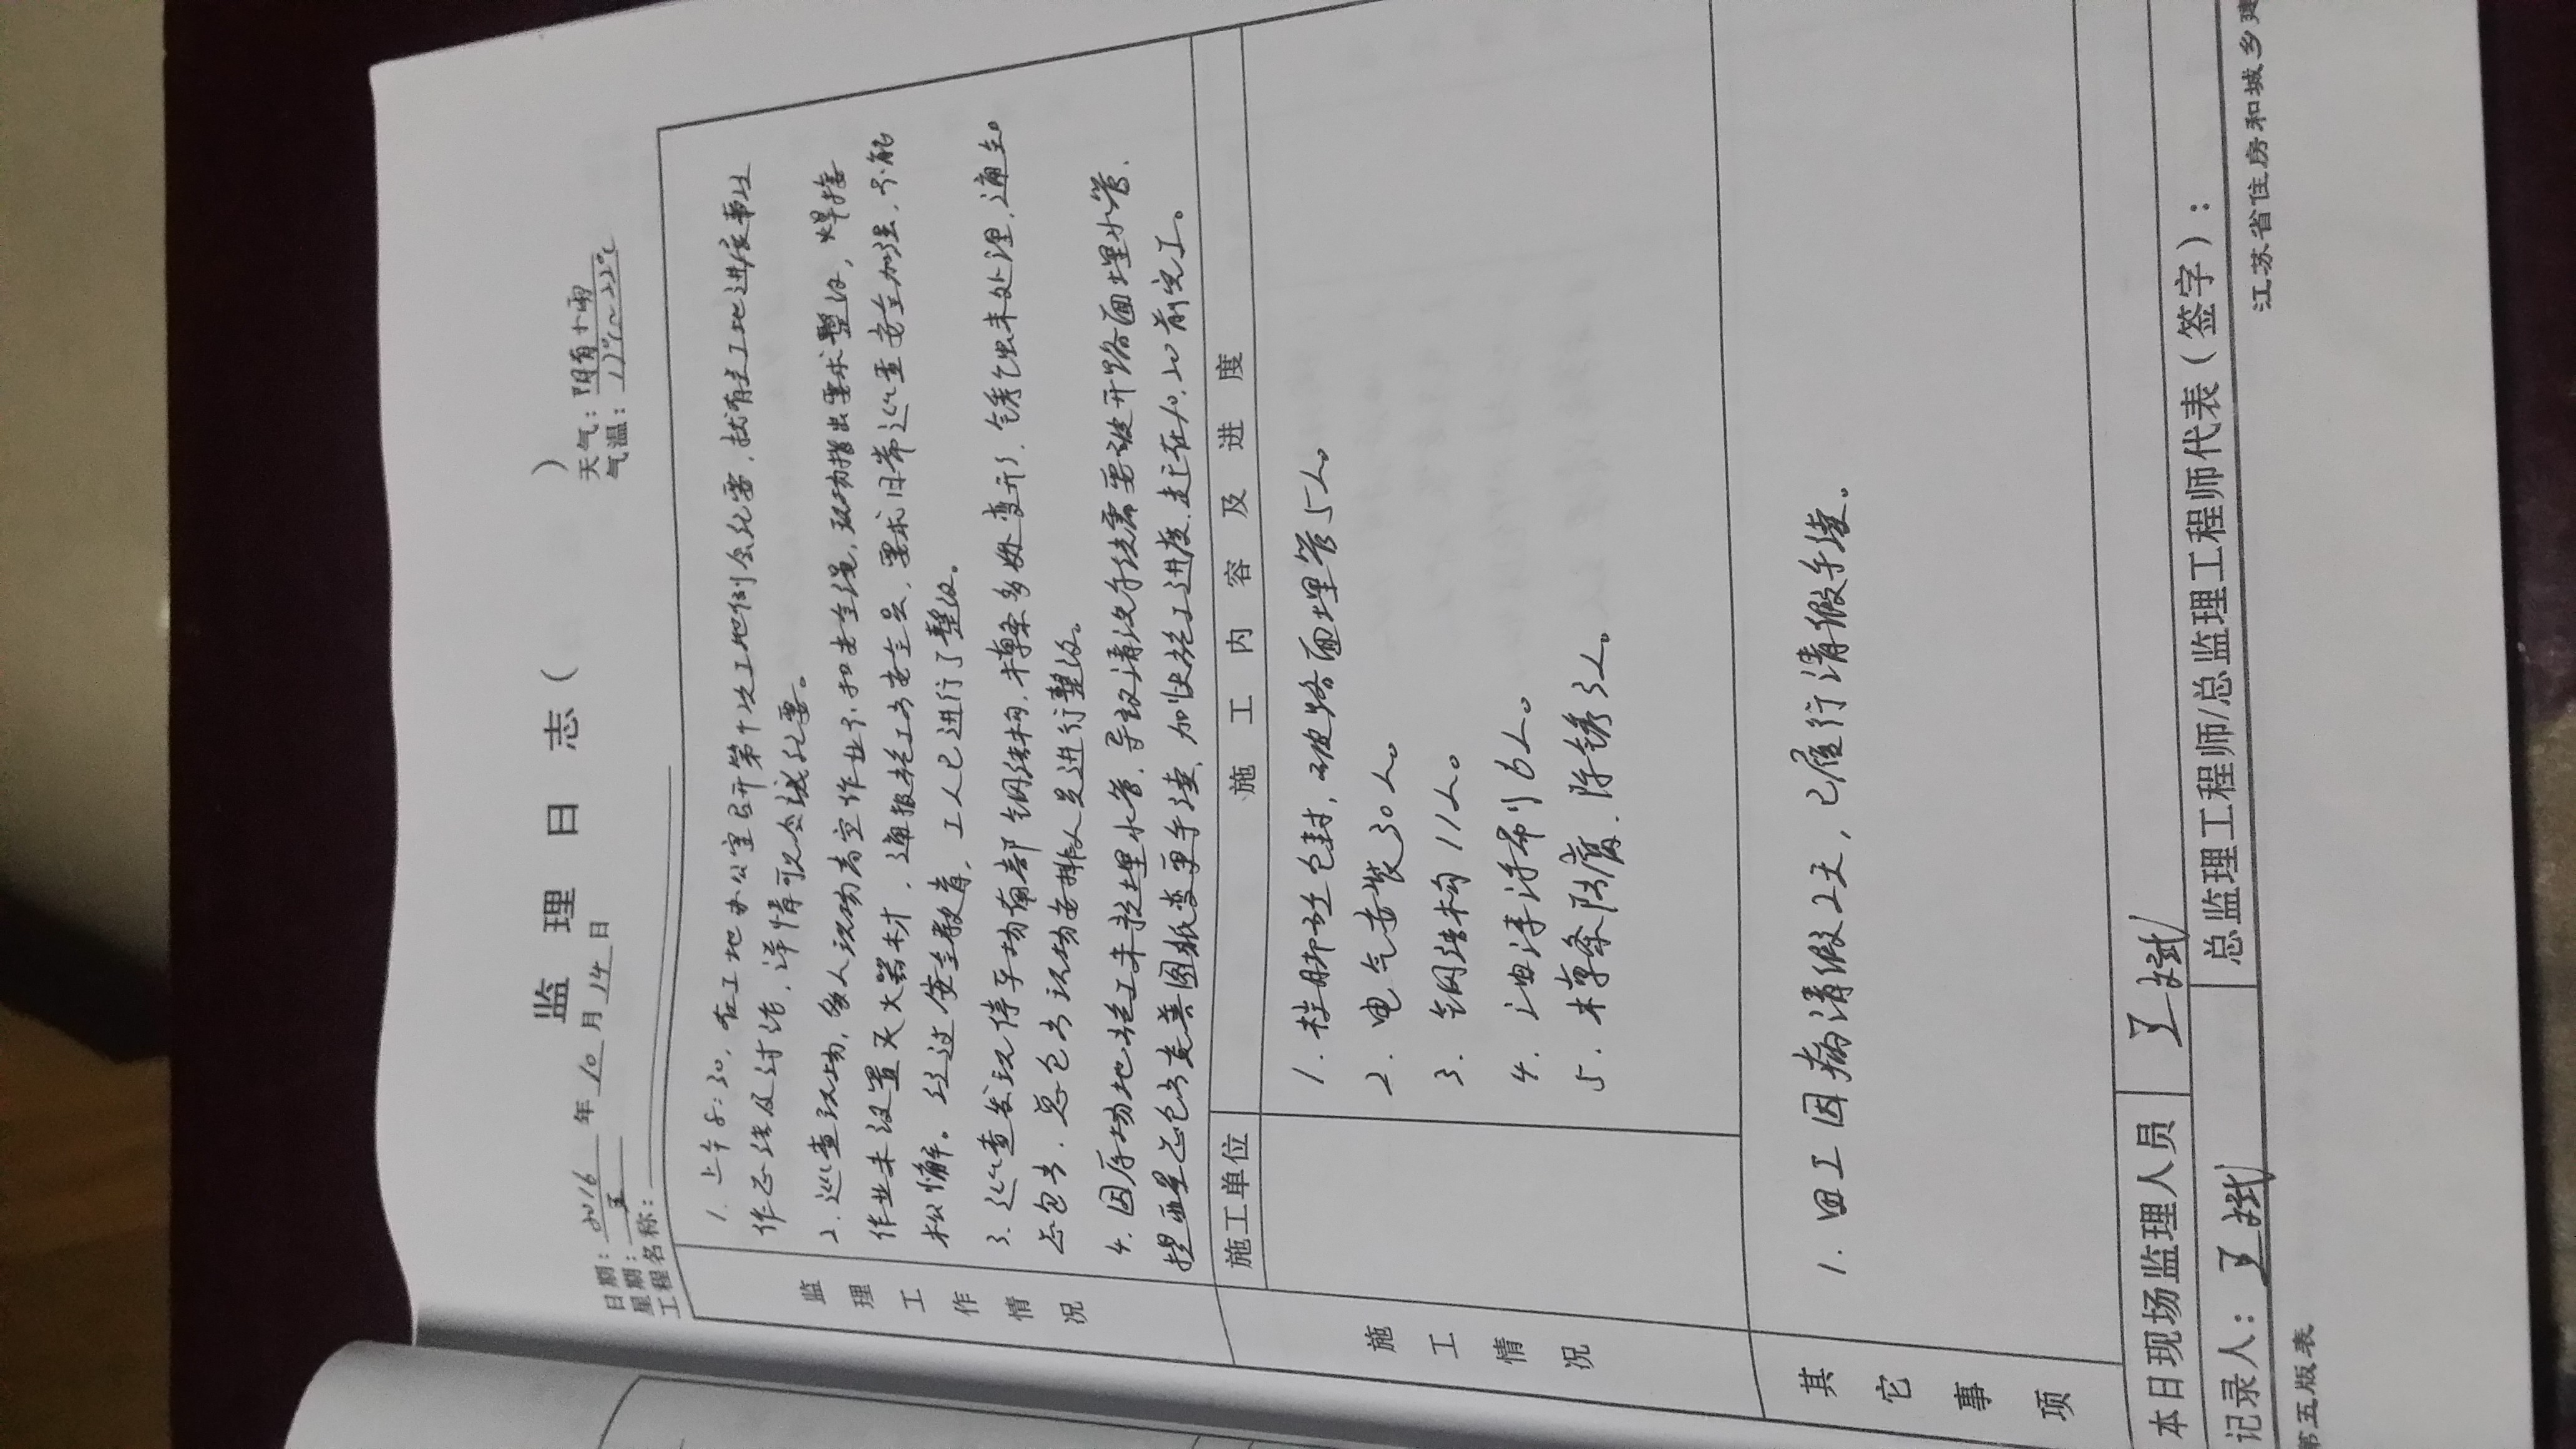 监 理 日 志 ( )
日期: 2016 年 10 月 14 日 天气: 阴有小雨
星期: 五 气温: 17℃~22℃
工程名称:
监理工作情况
1. 上午8:30, 在工地办公室召开第十次工地例会纪要, 就有关工地进度事业
作总结及讨论, 详情可见会议纪要。
2. 巡查现场, 多人现场高空作业不扣安全绳, 现场指出要求整改, 焊接
作业未设置灭火器材, 通报施工方安全员, 要求日常巡查安全加强, 不能
松懈。经过安全教育, 工人已进行了整改。
3. 巡查发现停车场南部钢结构, 未 多处变形, 锈蚀未处理, 通知
总包方, 总包方现场安排人员进行整改。
4. 因原场地施工未挖埋水管, 导致清淤系统需要破开路面埋水管,
提醒总包方完善图纸变更手续, 加快施工进度, 定在10.20前完工。
施工情况
施工单位 施 工 内 容 及 进 度
1. 柱脚砼包封, 破路面埋管5人。
2. 电气安装30人。
3. 钢结构11人。
4. 油漆涂刷6人。
5. 防腐. 除锈3人。
其它事项
1. 田工因病请假2天, 已履行请假手续。
本日现场监理人员
记录人: 总监理工程师/总监理工程师代表(签字):
第五版表 江苏省住房和城乡建